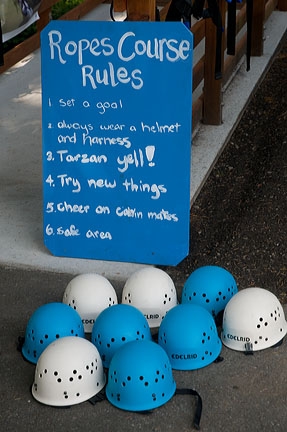 Ropes Course
Rules
1. Set a goal
2. always wear a helmet
and Harness
3. Tarzan yell!
4. Try new things
5. Cheer on Cabin mates
6. Safe area
EDELRID
EDELRID
EDELRID